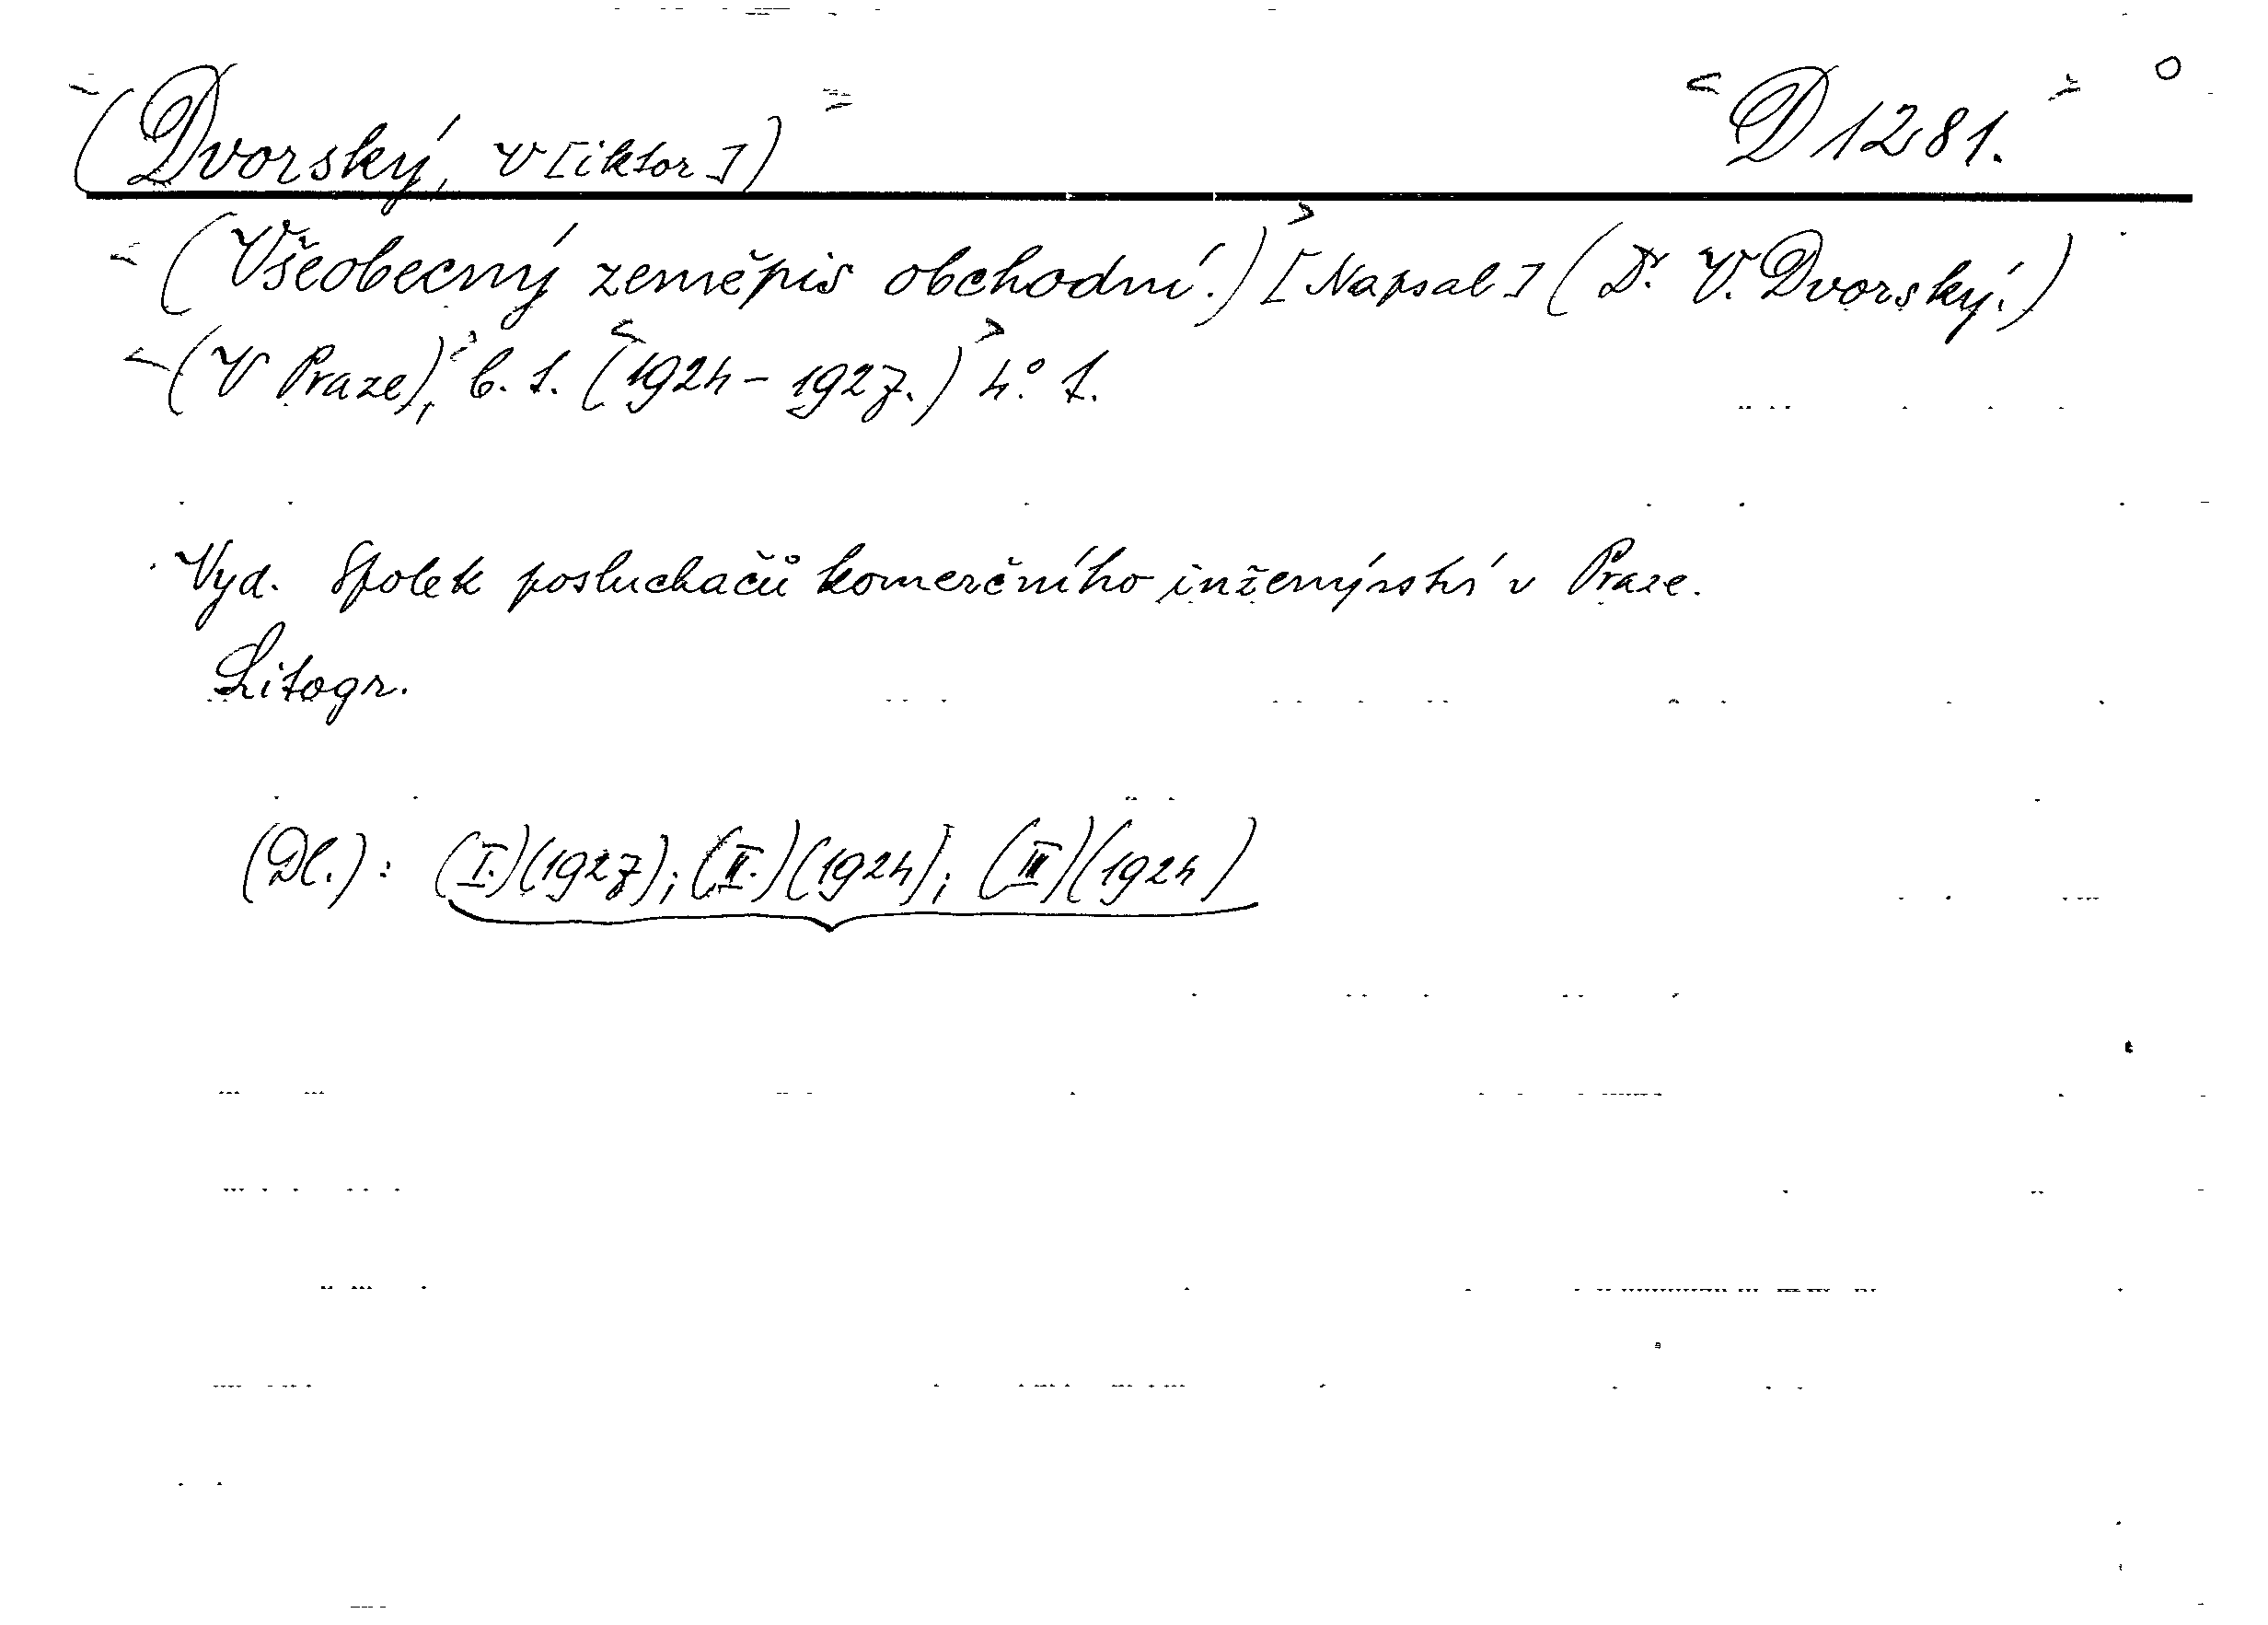 (Dvorský, V[iktor]) <D 1281.>
<(Všeobecný zeměpis obchodní.)> [Napsal] (Dr. V. Dvorský.)
<(V Praze),> b. t. <(1924-1927.)> 4°. t.
Vyd. Spolek posluchačů komerčního inženýrství v Praze.
Litogr.
(Dl.): (I.)(1927); (II.)(1924); (III)(1924)